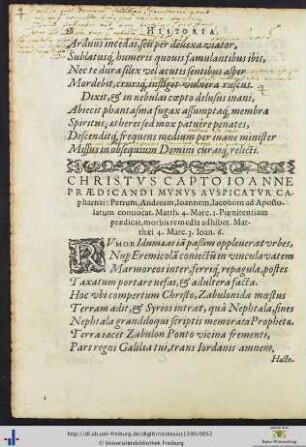 28 HISTORIA.
Ardui incedas, seu per devexa viator,
Sublatusq́; humeris quovis famulantibus ibis,
Nec te dura silex vel acuti sentibus asper
Mordebit, cruriq́; infliget vulnera ruscus.
Dixit, & in nebulas cœpto delusus inani,
Abiecit phantasma fugax assumptaq́; membra
Spiritus; at heres ed mox patuere penates,
Descenditq́; frequens medium per inane minister
Missus in obsequium Domini curasq́; relicti.
CHRISTVS CAPTO IOANNE
PRÆDICANDI MVNVS AVSPICATVR CA-
pharnai: Petrum, Andream, Ioannem, Iacobum ad Aposto-
latum convocat. Matth. 4. Marc. 1. Pœnitentiam
prædicat, morbis remedia adhibet. Mat-
thæi 4. Marc. 3. Ioan. 6.
RVMOR Idumæas iā passim oppleverat vrbes,
Nup Eremicolā coniectū in vincula vatem
Marmoreos inter, ferriq́; repagula, postes
Taxatum portare nefas, & adultera facta.
Hoc vbi compertum Christo, Zabulonida mœstus
Terram adit, & Syrios intrat, quà Nephtala, fines
Nephtala grandiloqui scriptis memorata Prophetæ.
Terra iacet Zabulon Ponto vicina frementi,
Pars regni Galilæa tui, trans Iordanis amnem,
Hacte-
http://dl.ub.uni-freiburg.de/diglit/nicolausius1590/0052
© Universitätsbibliothek Freiburg
Baden-Württemberg